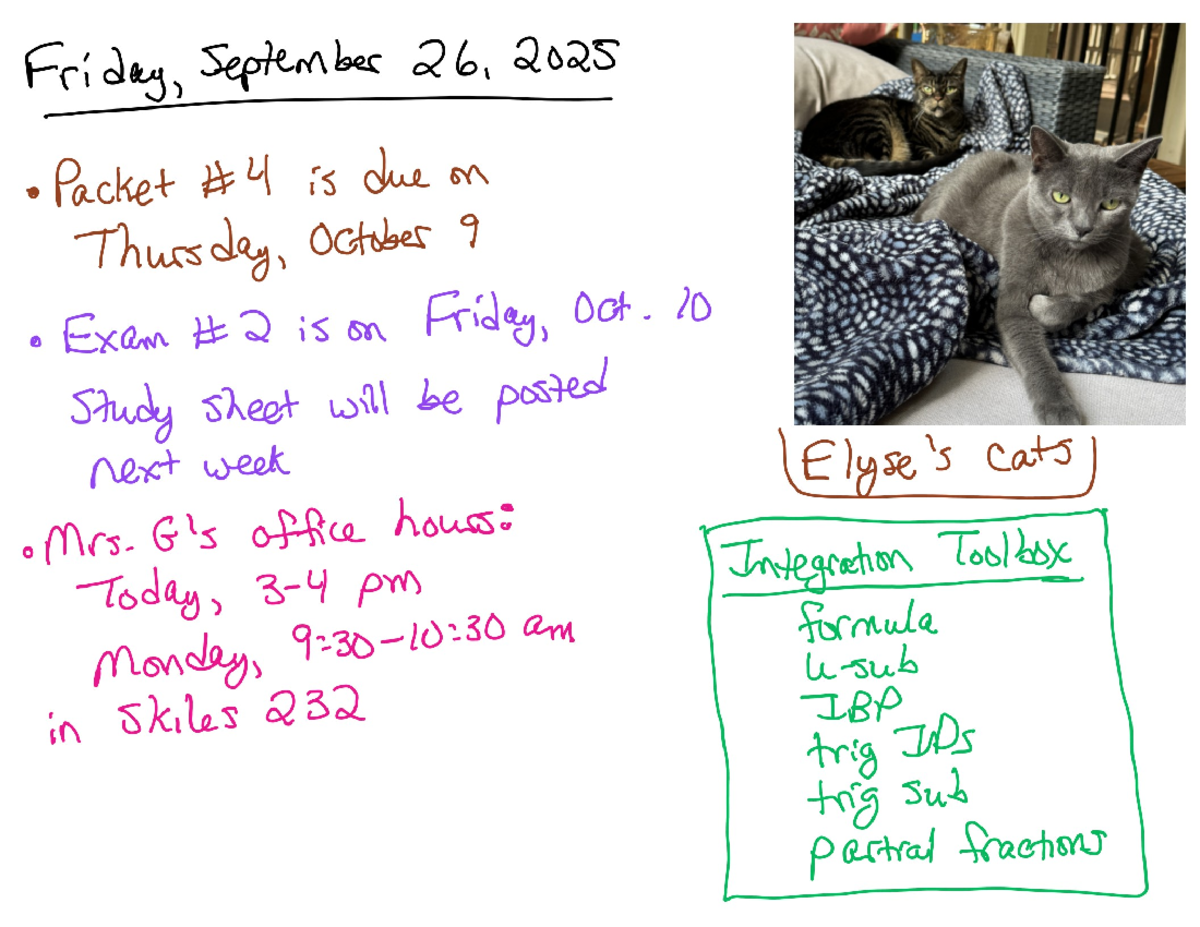 Friday, September 26, 2025
• Packet #4 is due on
Thursday, October 9
• Exam #2 is on Friday, Oct. 10
Study sheet will be posted
next week
• Mrs. G's office hours:
Today, 3-4 pm
Monday, 9:30-10:30 am
in Skiles 232
Elyse's cats
Integration Toolbox
formula
u-sub
IBP
trig IDs
trig sub
partial fractions